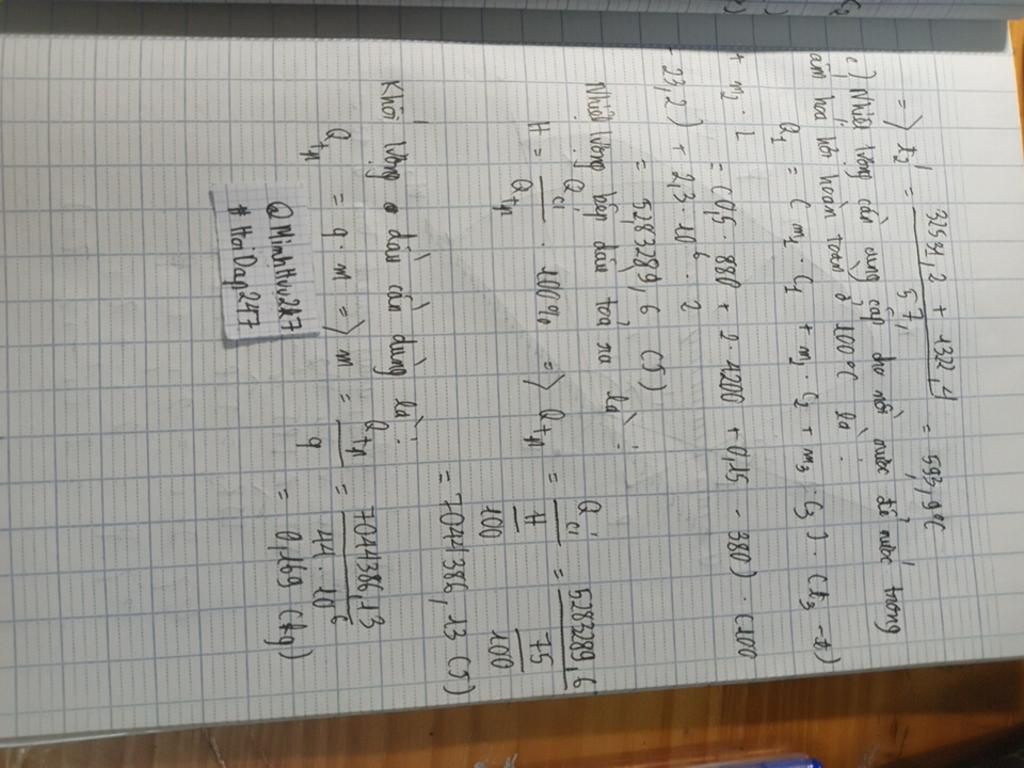 => t2' = 3359,2 + 1322,4 / 57, = 593,9°C
c) Nhiệt lượng cần cung cấp cho nồi nước để nước trong
ấm hoá hơi hoàn toàn ở 100°C là:
Q1 = (m1 . C1 + m2 . C2 + m3 . C3) . (t3 - t)
+ m2 . L = (0,5 . 880 + 2 . 4200 + 0,15 - 380) . (100
- 23,2) + 2,3 . 10^6 . 2
= 5283289,6 (J)
Nhiệt lượng bếp dầu toả ra là:
H = Qci / Qtp . 100% => Qtp = Qci / H/100 = 5283289,6 / 75/100
= 7044386,13 (J)
Khối lượng dầu cần dùng là:
Qtp = q . m => m = Qtp / q = 7044386,13 / 44 . 10^6
= 0,169 (kg)
@MinhHuu2k7
#HoiDap247